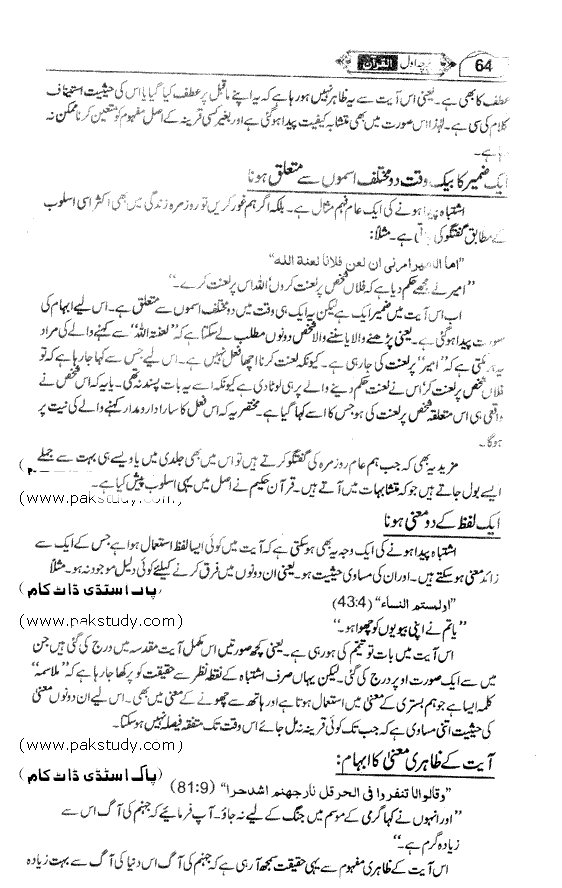 64
پرچہ اول القرآن
عطف کا بھی ہے۔ یعنی اس آیت سے یہ ظاہر نہیں ہو رہا ہے کہ یہ اپنے ماقبل پر عطف کیا گیا یا اس کی حیثیت استیناف
کلام کی سی ہے۔ لہٰذا اس صورت میں بھی متشابہ کیفیت پیدا ہو گئی ہے اور بغیر کسی قرینہ کے اصل مفہوم کو متعین کرنا ممکن نہ
رہا ہے۔
ایک ضمیر کا بیک وقت دو مختلف اسموں سے متعلق ہونا
اشتباہ پیدا ہونے کی ایک عام فہم مثال ہے۔ بلکہ اگر ہم غور کریں تو روزمرہ زندگی میں بھی اکثر اسی اسلوب
کے مطابق گفتگو کی جاتی ہے۔ مثلاً:
"اما الامیر امرنی ان لعن فلانا لعنة الله"
"امیر نے مجھے حکم دیا ہے کہ فلاں شخص پر لعنت کروں اللہ اس پر لعنت کرے۔"
اب اس آیت میں ضمیر ایک ہے لیکن یہ ایک ہی وقت میں دو مختلف اسموں سے متعلق ہے۔ اس لیے ابہام کی
صورت پیدا ہو گئی ہے۔ یعنی پڑھنے والا یا سننے والا شخص دونوں مطلب لے سکتا ہے کہ "لعنة اللہ" سے کہنے والے کی مراد
یہ ہو سکتی ہے کہ "امیر" پر لعنت کی جا رہی ہے۔ کیونکہ لعنت کرنا اچھا فعل نہیں ہے۔ اس لیے جس سے کہا جا رہا ہے کہ تو
فلاں شخص پر لعنت کر اس نے لعنت حکم دینے والے پر ہی لوٹا دی ہے کیونکہ اسے یہ بات پسند نہ تھی۔ یا یہ کہ اس شخص نے
واقعی ہی اس متعلقہ شخص پر لعنت کی ہو جس کا اسے کہا گیا ہے۔ مختصر یہ کہ اس فعل کا سارا دارومدار کہنے والے کی نیت پر
ہوگا۔
مزید یہ بھی کہ جب ہم عام روزمرہ کی گفتگو کرتے ہیں تو اس میں بھی جلدی میں یا ویسے ہی بہت سے جملے
ایسے بول جاتے ہیں جو کہ متشابہات میں آتے ہیں۔ قرآن حکیم نے اصل میں یہی اسلوب پیش کیا ہے۔
(www.pakstudy.com)
ایک لفظ کے دو معنی ہونا
اشتباہ پیدا ہونے کی ایک وجہ یہ بھی ہو سکتی ہے کہ آیت میں کوئی ایسا لفظ استعمال ہوا ہے جس کے ایک سے
زائد معنی ہو سکتے ہیں۔ اور ان کی مساوی حیثیت ہو۔ یعنی ان دونوں میں فرق کرنے کیلئے کوئی دلیل موجود نہ ہو۔ مثلاً
(پاک اسٹڈی ڈاٹ کام)
"اولستم النساء" (43:4)
(www.pakstudy.com)
"یا تم نے اپنی بیویوں کو چھوا ہو۔"
اس آیت میں بات تو تیمم کی ہو رہی ہے۔ یعنی کچھ صورتیں اس مکمل آیت مقدسہ میں درج کی گئی ہیں جن
میں سے ایک صورت اوپر درج کی گئی۔ لیکن یہاں صرف اشتباہ کے نقطہ نظر سے حقیقت کو پرکھا جا رہا ہے کہ "ملامسہ"
کلمہ ایسا ہے جو ہم بستری کے معنی میں استعمال ہوتا ہے اور ہاتھ سے چھونے کے معنی میں بھی۔ اس لیے ان دونوں معنی
کی حیثیت اتنی مساوی ہے کہ جب تک کوئی قرینہ نہ مل جائے اس وقت تک متفقہ فیصلہ نہیں ہو سکتا۔
(www.pakstudy.com)
آیت کے ظاہری معنیٰ کا ابہام:
(پاک اسٹڈی ڈاٹ کام)
"وقالوالا تنفروا فی الحر قل نار جهنم اشد حرا" (81:9)
"اور انہوں نے کہا گرمی کے موسم میں جنگ کے لیے نہ جاؤ۔ آپ فرمائیے کہ جہنم کی آگ اس سے
زیادہ گرم ہے۔"
(www.pakstudy.com)
اس آیت کے ظاہری مفہوم سے یہی حقیقت سمجھ آ رہی ہے کہ جہنم کی آگ اس دنیا کی آگ سے بہت زیادہ